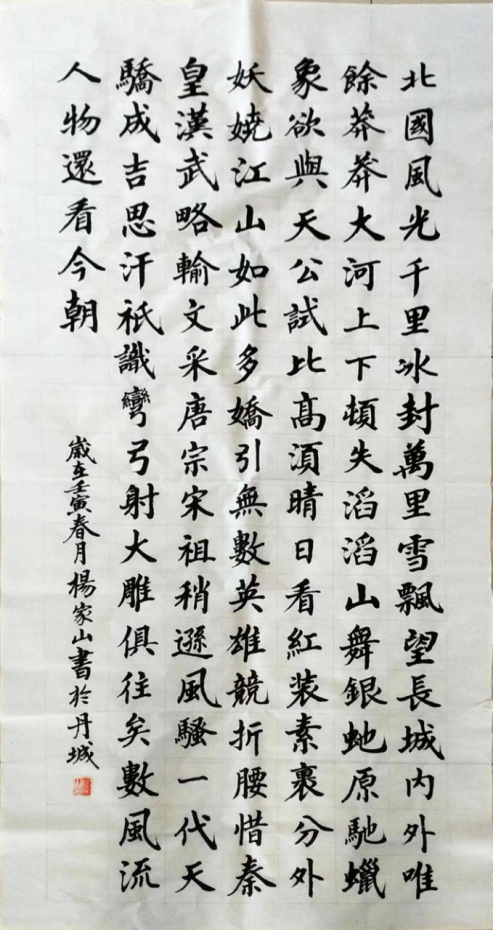 北國風光千里冰封萬里雪飄望長城內外唯
餘莽莽大河上下頓失滔滔山舞銀虵原馳蠟
象欲與天公試比髙湏晴日看紅装素裹分外
妖嬈江山如此多嬌引無數英雄競折腰惜秦
皇漢武略輸文采唐宗宋祖稍遜風騷一代天
驕成吉思汗祇識彎弓射大雕俱往矣數風流
人物還看今朝
歲在壬寅春月楊家山書於丹城